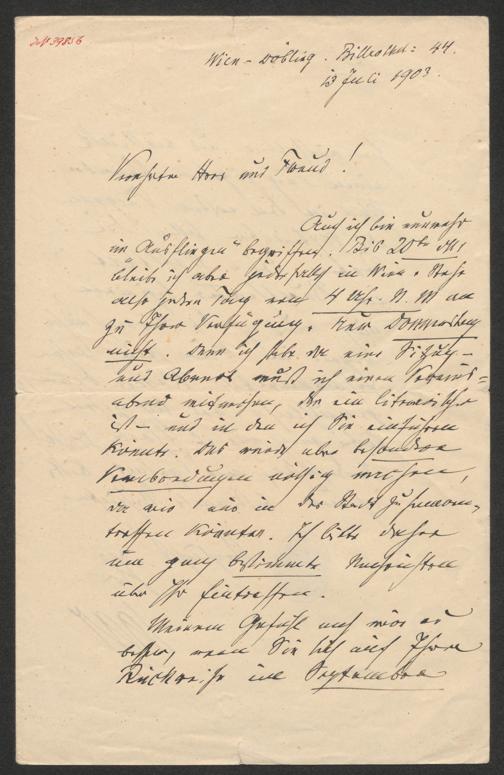 Wien – Döbling. Billrothst: 44.
13 Juli 1903.
Verehrter Herr und Freund!
Auch ich bin nunmehr
im "Ausfliegen" begriffen. Bis 20ten d. M.
bleibe ich aber jedenfalls in Wien. Stehe
also jeden Tag von 4 Uhr. N. M an
zu Ihrer Verfügung. Nur Donnerstag
nicht. Denn ich habe da eine Sitzung –
und Abends muß ich einen Vereins=
abend mitmachen, der ein literarischer
ist – und in den ich Sie einführen
könnte. Das würde aber besondere
Verabredungen nöthig machen,
da wir uns in der Stadt zusammen-
treffen könnten. Ich bitte daher
um ganz bestimmte Nachrichten
über Ihr Eintreffen.
Meinem Gefühl nach wär es
besser, wenn Sie sich auf Ihrer
Rückreise im September